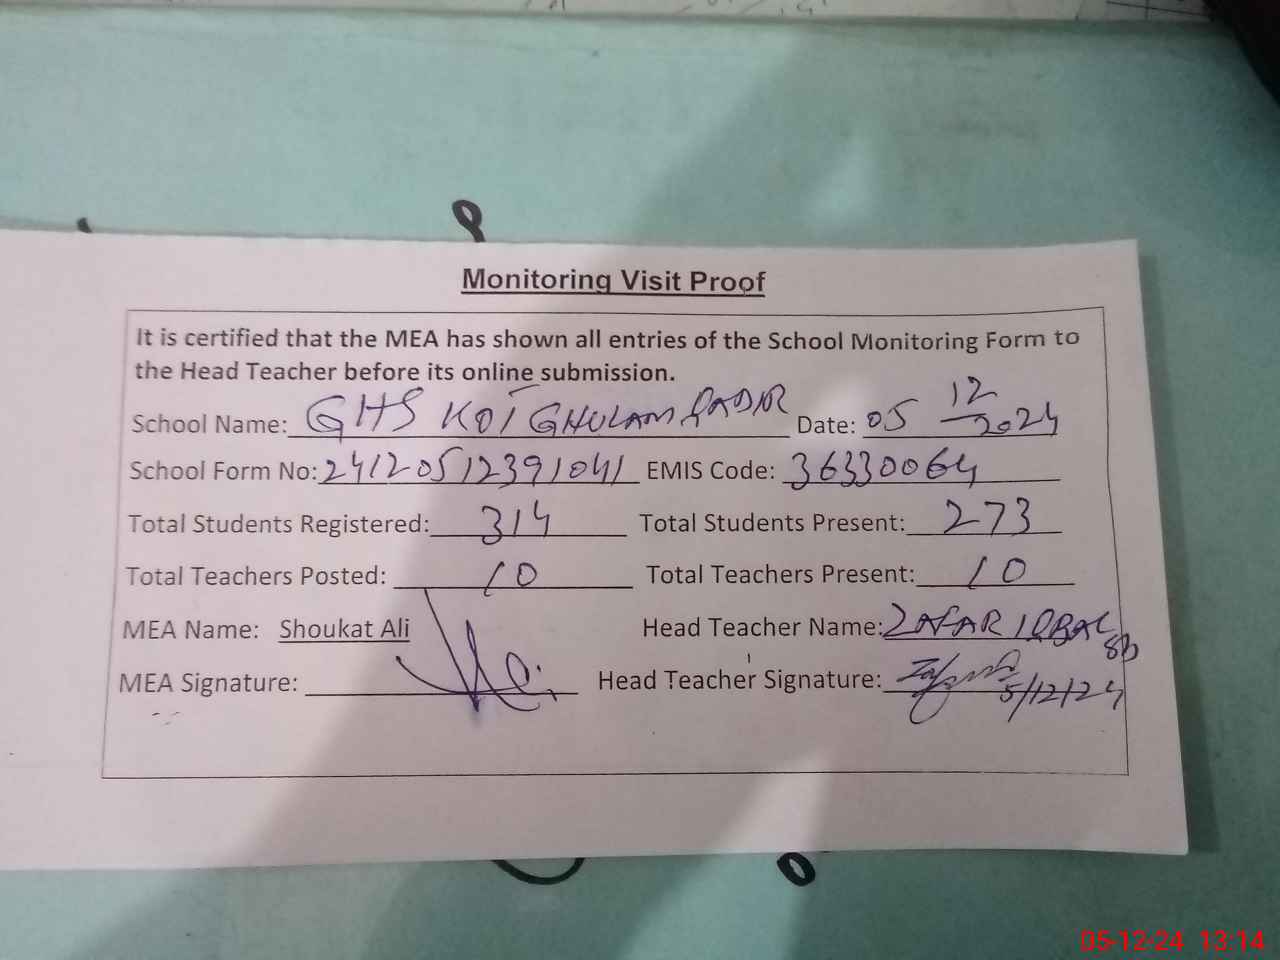 Monitoring Visit Proof
It is certified that the MEA has shown all entries of the School Monitoring Form to
the Head Teacher before its online submission.
School Name: GHS KOT GHULAM QADIR Date: 05 12/2024
School Form No: 24120512391041 EMIS Code: 36330064
Total Students Registered: 314 Total Students Present: 273
Total Teachers Posted: 10 Total Teachers Present: 10
MEA Name: Shoukat Ali Head Teacher Name: ZAFAR IQBAL
MEA Signature: Head Teacher Signature: 5/12/24
05-12-24 13:14